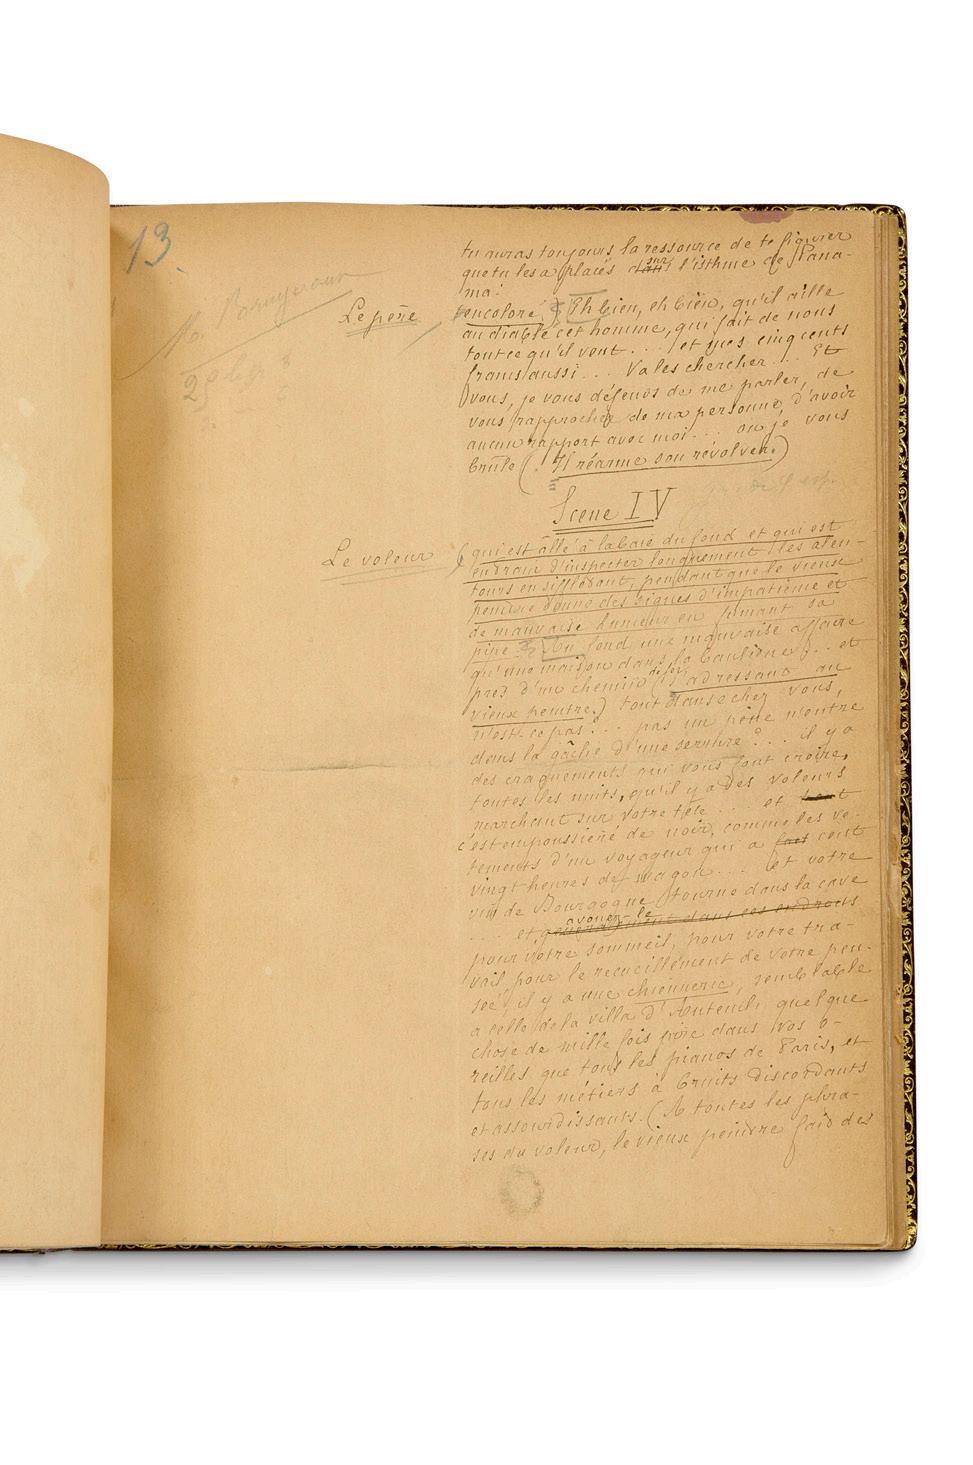 13.
tu auras toujours la ressource de te figurer
que tu les a placés dans sur l'isthme de Pana-
ma!
Le père
encoloré. Eh bien, eh bien, qu'il aille
au diable cet homme, qui fait de nous
tout ce qu'il veut.... et mes cinq cents
francs aussi... Va les chercher.... Et
vous, je vous défends de me parler, de
vous rapprocher de ma personne, d'avoir
aucun rapport avec moi.... ou je vous
brûle (. Il réarme son révolver.)
Scene IV
Le voleur
(qui est âllé à la baie du fond et qui est
en train d'inspecter longuement les alen-
tours en sifflotant, pendant que le vieux
peintre donne des signes d'impatience et
de mauvaise humeur en fumant sa
pipe. Au fond une mauvaise affaire
qu'une maison dans la banlieue... et
pres d'un chemin de fer (s'adressant au
vieux peintre.) tout danse chez vous,
n'est-ce pas?... pas un pène n'entre
dans la gâche d'une serrure?... il y a
des craquements qui vous font croire,
toutes les nuits, qu'il y a des voleurs
marchant sur votre tête.... et tout
c'est empoussiéré de noir, comme les ve-
tements d'un voyageur qui a fait cent
vingt heures de wagon.... et votre
vin de Bourgogne tourne dans la cave
avouez-le
.... et generalement dans ces endroits
pour votre sommeil, pour votre tra-
vail, pour le recueillement de votre pen-
sée, il y a une chiennerie, semblable
a celle de la villa d'Auteuil, quelque
chose de mille fois pire dans vos o-
reilles que tous les pianos de Paris, et
tous les métiers à bruits discordants
et assourdissants. (A toutes les phra-
ses du voleur, le vieux peintre fait des